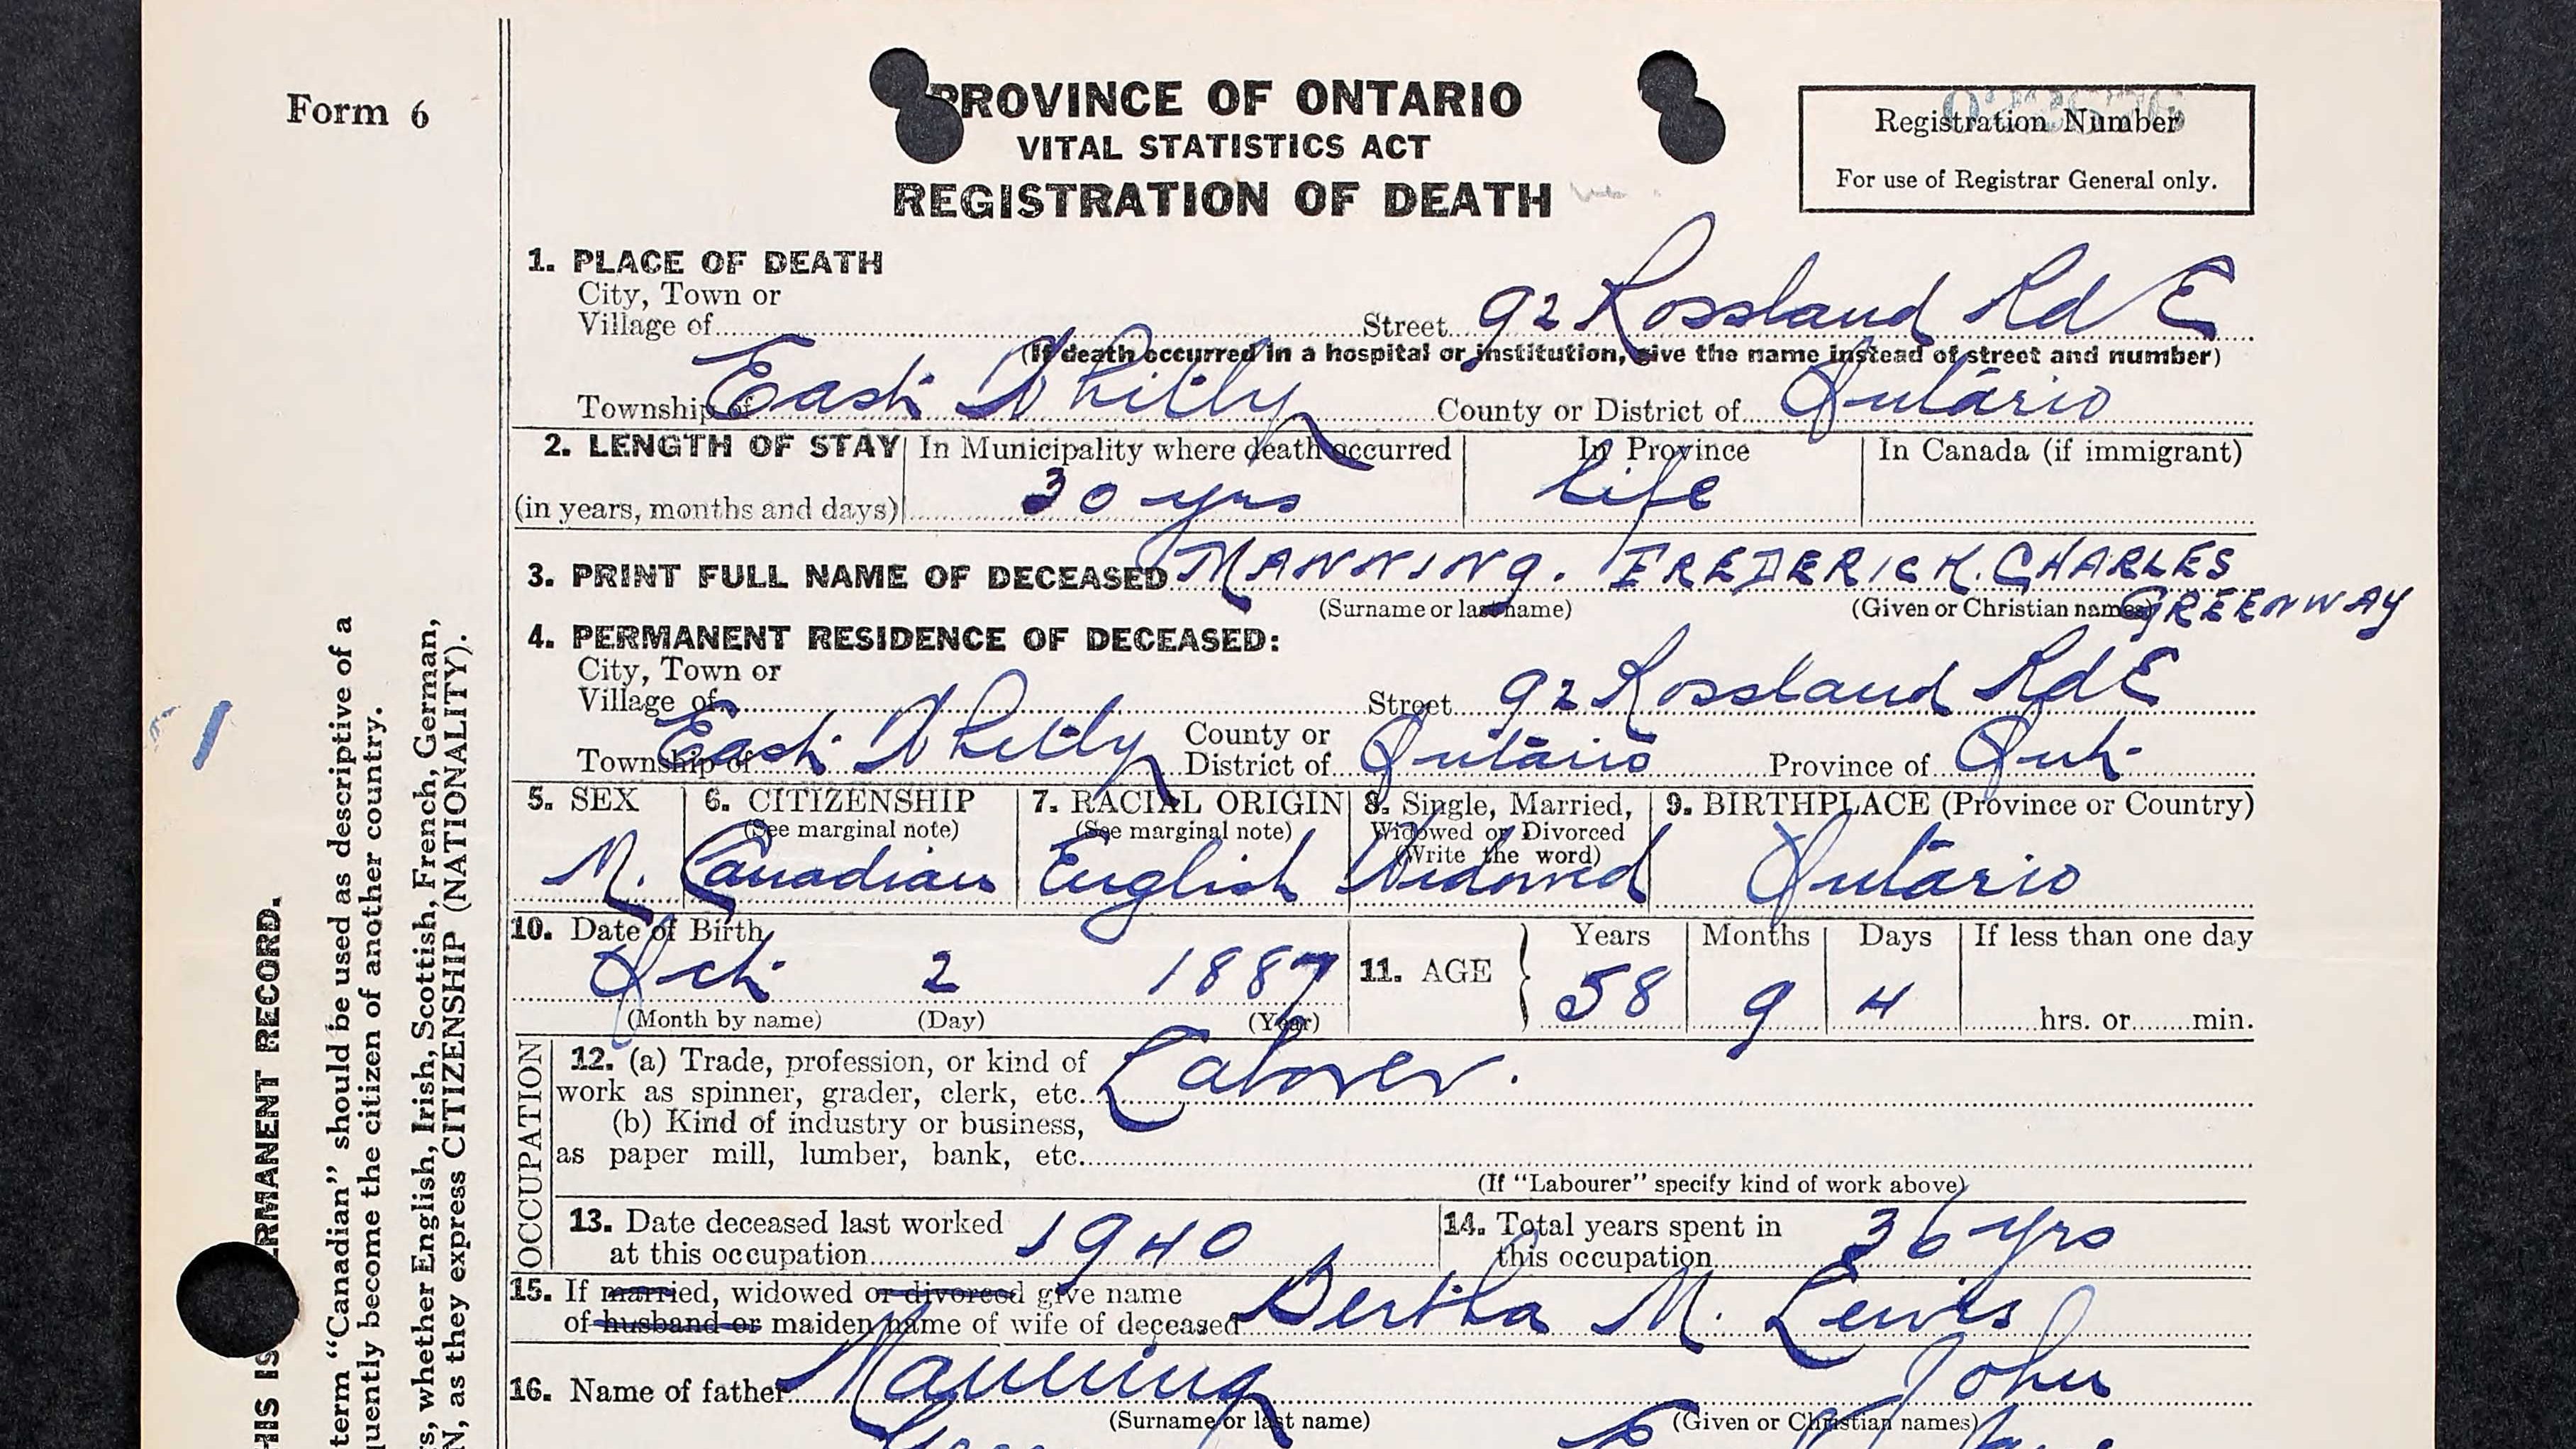 Form 6
PROVINCE OF ONTARIO
VITAL STATISTICS ACT
REGISTRATION OF DEATH
Registration Number
For use of Registrar General only.
1. PLACE OF DEATH
City, Town or
Village of Street 92 Rossland Rd E
(If death occurred in a hospital or institution, give the name instead of street and number)
Township of East Whitby County or District of Ontario
2. LENGTH OF STAY In Municipality where death occurred In Province In Canada (if immigrant)
(in years, months and days) 30 yrs life
3. PRINT FULL NAME OF DECEASED MANNING. FREDERICK. CHARLES
(Surname or last name) (Given or Christian names) GREENWAY
4. PERMANENT RESIDENCE OF DECEASED:
City, Town or
Village of Street 92 Rossland Rd E
Township of East Whitby County or District of Ontario Province of Ont.
5. SEX 6. CITIZENSHIP 7. RACIAL ORIGIN 8. Single, Married, 9. BIRTHPLACE (Province or Country)
(See marginal note) (See marginal note) Widowed or Divorced
(Write the word)
M. Canadian English Widowed Ontario
10. Date of Birth 11. AGE Years Months Days If less than one day
Oct. 2 1887 58 9 4
(Month by name) (Day) (Year) hrs. or min.
OCCUPATION
12. (a) Trade, profession, or kind of
work as spinner, grader, clerk, etc. Laborer.
(b) Kind of industry or business,
as paper mill, lumber, bank, etc.
(If "Labourer" specify kind of work above)
13. Date deceased last worked 14. Total years spent in
at this occupation 1940 this occupation 36 yrs
15. If married, widowed or divorced give name
of husband or maiden name of wife of deceased Bertha M. Lewis
16. Name of father Manning John
(Surname or last name) (Given or Christian names)
HIS IS ERMANENT RECORD.
term "Canadian" should be used as descriptive of a
quently become the citizen of another country.
s, whether English, Irish, Scottish, French, German,
N, as they express CITIZENSHIP (NATIONALITY).